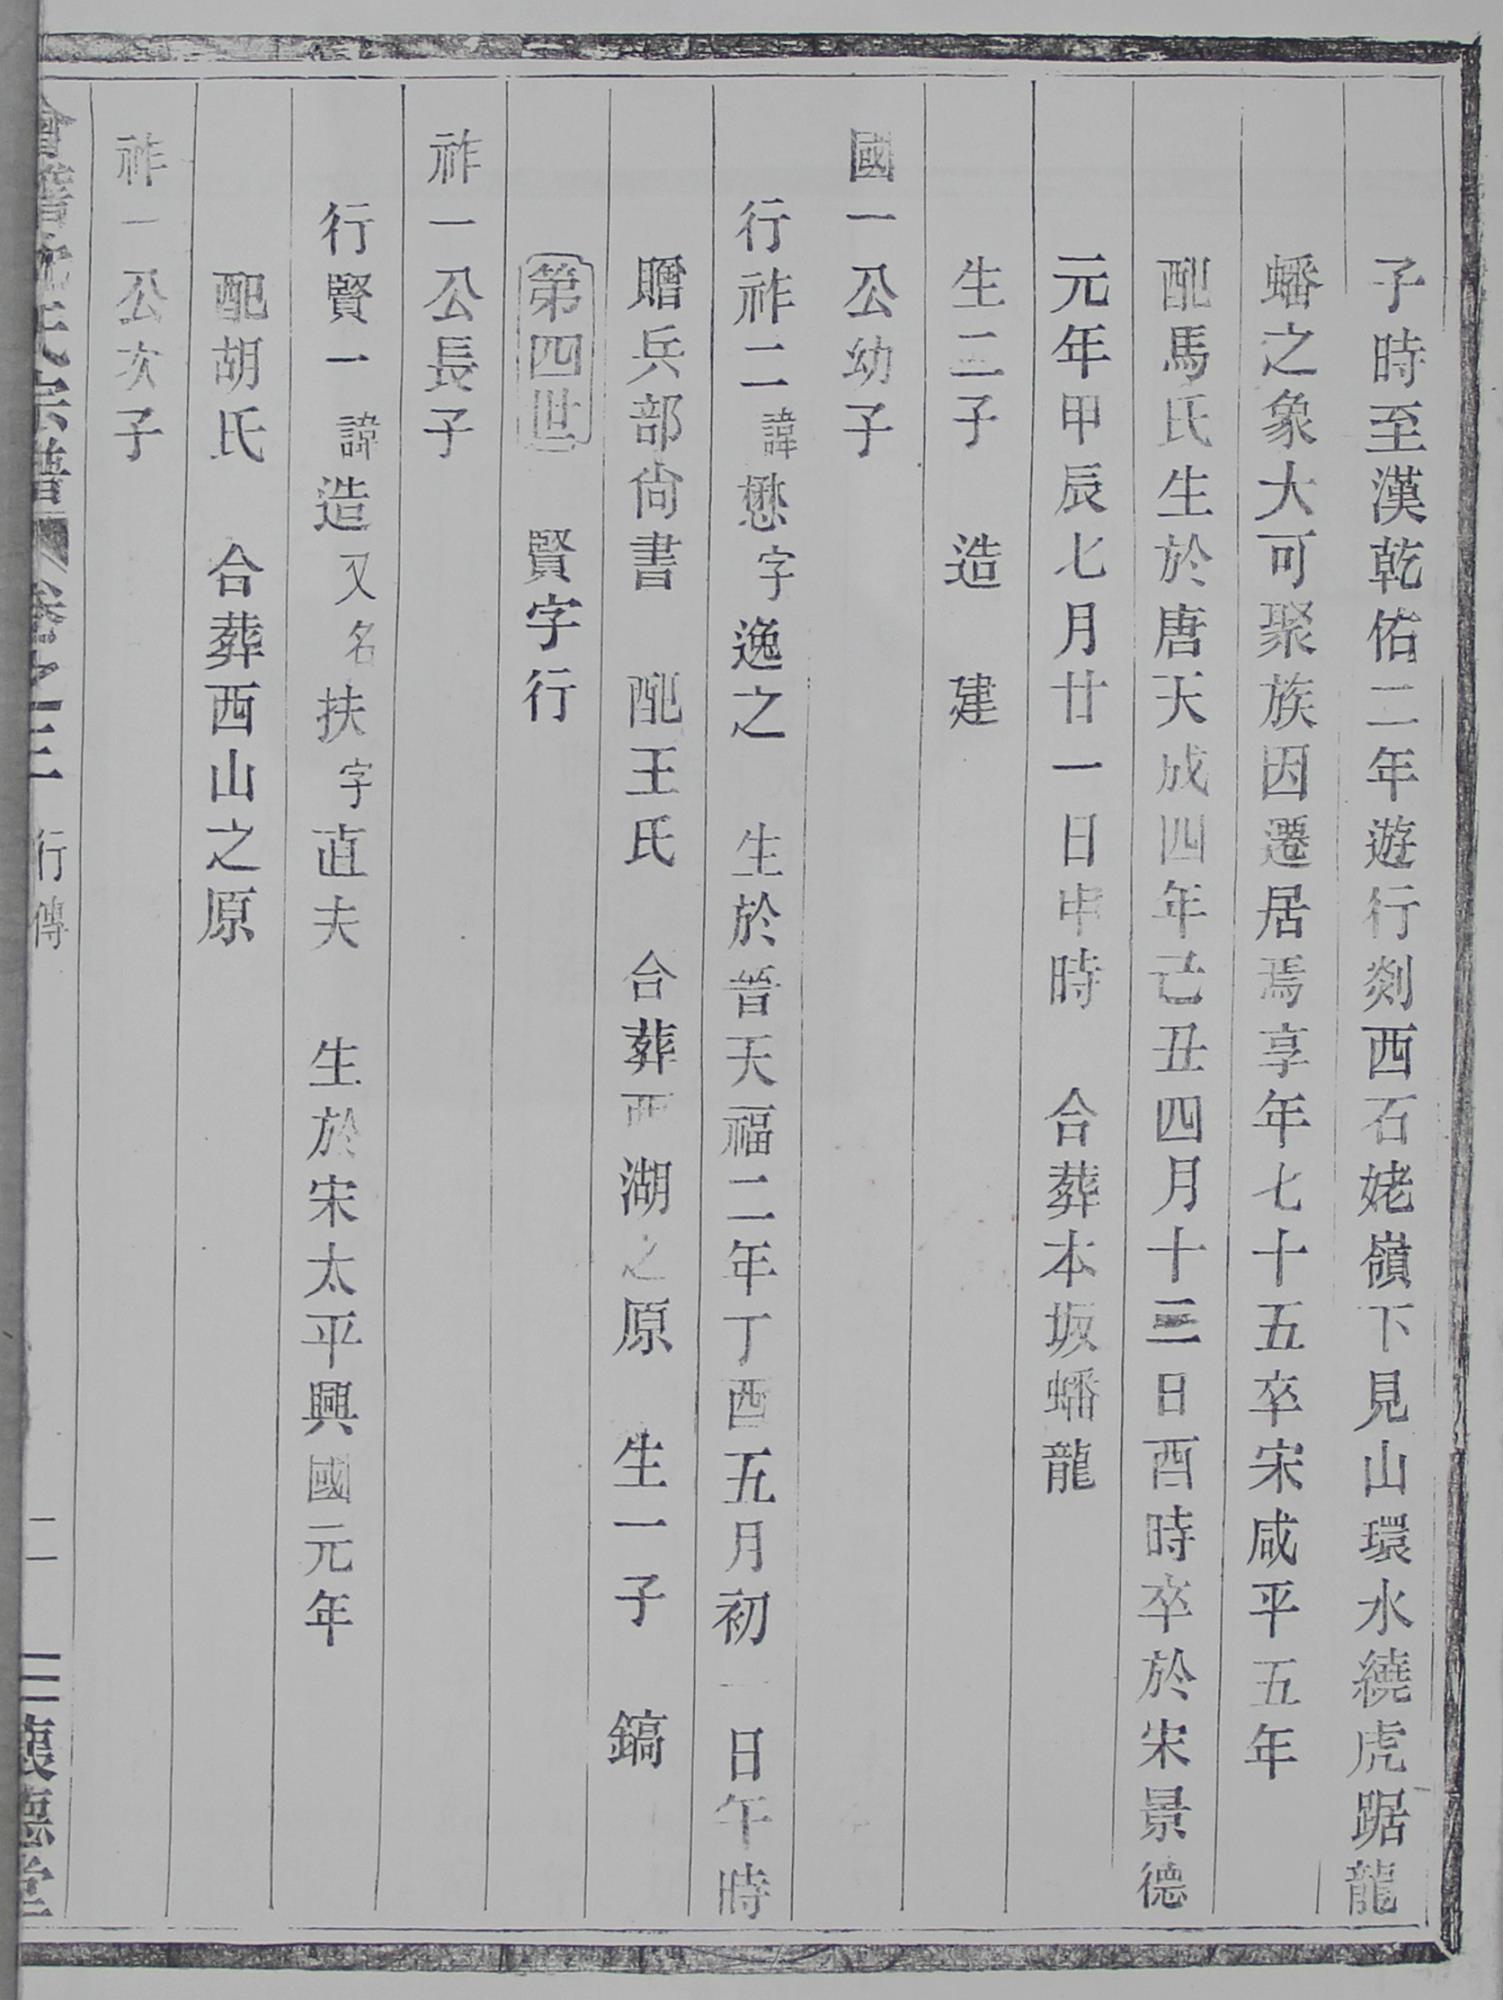 子時至漢乾佑二年遊行剡西石姥嶺下見山環水繞虎踞龍
蟠之象大可聚族因遷居焉享年七十五卒宋咸平五年
配馬氏生於唐天成四年己丑四月十三日酉時卒於宋景德
元年甲辰七月廿一日申時　合葬本坂蟠龍
生二子　造　建
國一公幼子
行祚二諱懋字逸之　生於晉天福二年丁酉五月初一日午時
贈兵部尙書　配王氏　合葬西湖之原　生一子　鎬
第四世　賢字行
祚一公長子
行賢一諱造又名扶字直夫　生於宋太平興國元年
配胡氏　合葬西山之原
祚一公次子
氏宗譜　卷之三　行傳　二　懷德堂